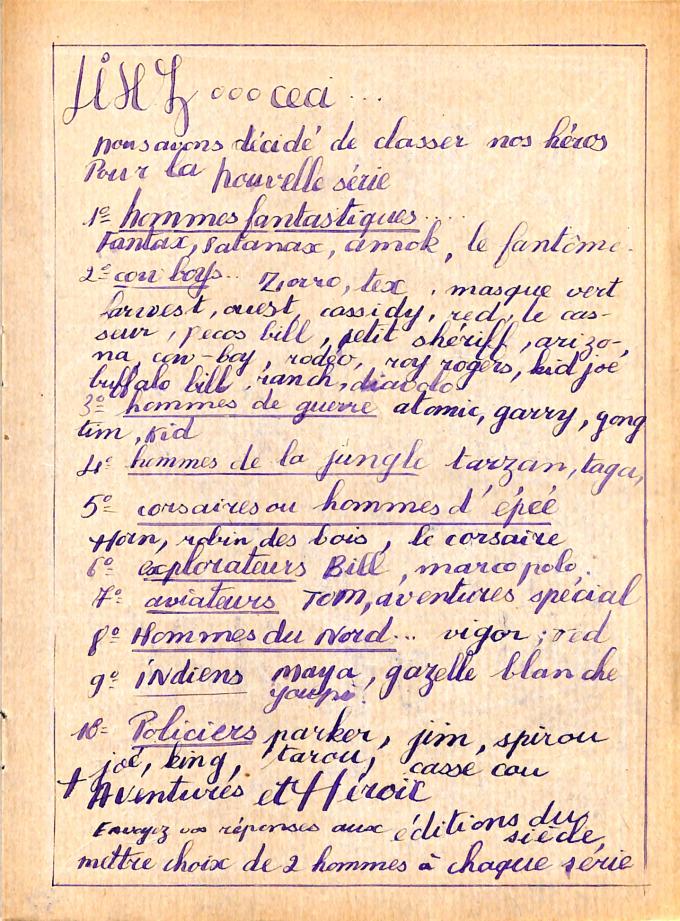 LISEZ ooo ceci ...
nous avons décidé de classer nos héros
Pour la nouvelle série
1º hommes fantastiques ....
Fantax, Satanax, amok, le fantôme.
2º cow boys.. Zorro, tex, masque vert
farwest, ouest, cassidy, red, le cas-
seur, pecos bill, petit shériff, arizo-
na, cow-boy, rodéo, roy rogers, kid joe
buffalo bill, ranch, diavolo
3º hommes de guerre atomic, garry, yong
tim, Kid
4º hommes de la jungle tarzan, taga,
5º corsaires ou hommes d'épéé
Horn, robin des bois, le corsaire
6º explorateurs Bill, marco polo.
7º aviateurs Tom, aventures spécial
8º Hommes du Nord... vigor, red
9º indiens maya, gazelle blanche
youpi!
10= Policiers parker, jim, spirou
joé, king, tarou, casse cou
+ Aventures et Héroïc
Envoyez vos réponses aux éditions du
siècle,
mettre choix de 2 hommes à chaque série